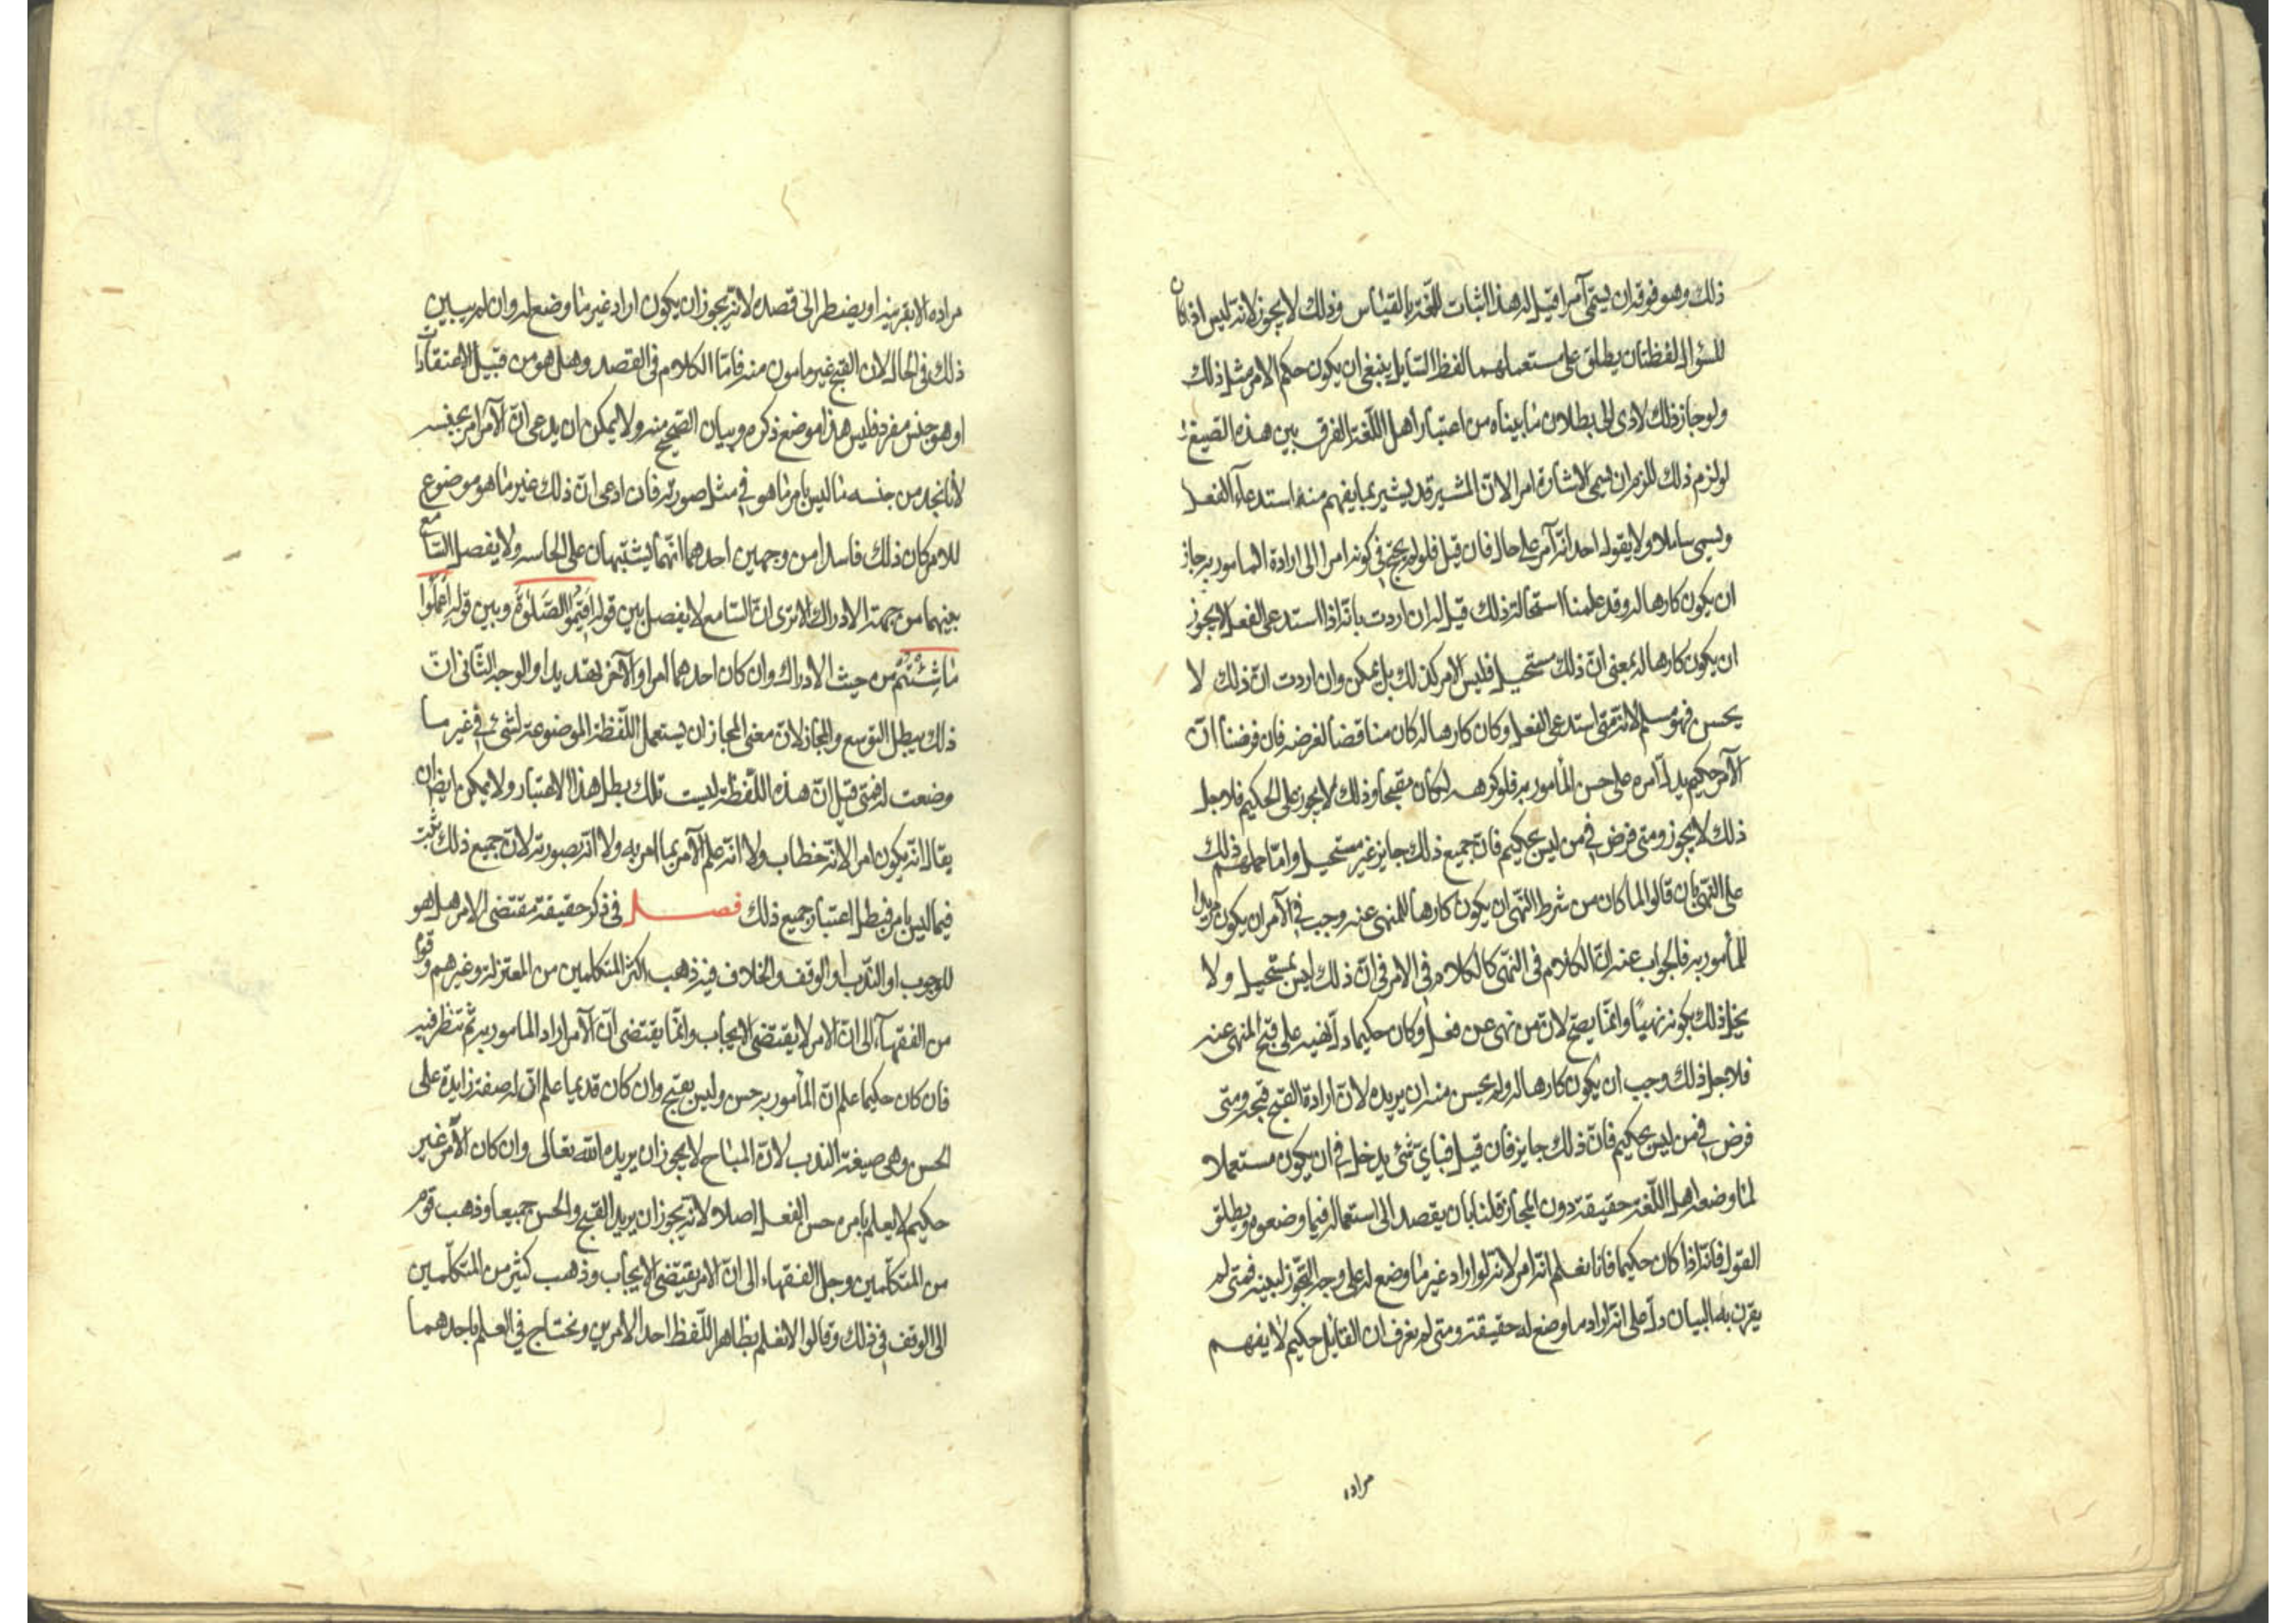 ذلك وهو فوقه ان يسمى آمرا قيل له هذا اثبات اللغة بالقياس وذلك لا يجوز لانه ليس اذا كان
للسؤال لفظتان يطلق على مستعملهما لفظ السايل ينبغى ان يكون حكم الامر مثل ذلك
ولو جاز ذلك لادى الى بطلان ما بيناه من اعتبار اهل اللغة الفرق بين هذه الصيغ
لو لزم ذلك للزم ان يسمى الاشارة امرا لان المشير قد يشير بما يفهم منه استدعاء الفعل
ويسمى سايلا ولا يقول احد انه آمر على حال فان قيل فلو لم يحتج فى كونه امرا الى ارادة المامور به جاز
ان يكون كارها له وقد علمنا استحالة ذلك قيل له ان اردت بانه اذا استدعى الفعل لا يجوز
ان يكون كارها له بمعنى ان ذلك مستحيل فليس الامر كذلك بل يمكن وان اردت ان ذلك لا
يحسن فهو مسلم لانه متى استدعى الفعل وكان كارها له كان مناقضا لغرضه فان فرضنا ان
الآمر حكيم يدل امره على حسن المأمور به فلو كرهه لكان مقبحا وذلك لا يجوز على الحكيم فلاجل
ذلك لا يجوز ومتى فرض فى من ليس بحكيم فان جميع ذلك جايز غير مستحيل واما حملهم ذلك
على النهى بان قالوا لما كان من شرط النهى ان يكون كارها للمنهى عنه وجب فى الآمر ان يكون مريدا
للمأمور به فالجواب عنه ان الكلام فى النهى كالكلام فى الامر فى ان ذلك ليس بمستحيل ولا
يخل ذلك بكونه نهيا وانما يصح لان من نهى عن فعل وكان حكيما دل نهيه على قبح المنهى عنه
فلاجل ذلك وجب ان يكون كارها له ولم يحسن منه ان يريده لان ارادة القبيح قبيحة ومتى
فرض فى من ليس بحكيم فان ذلك جايز فان قيل فباى شئ يدخل فى ان يكون مستعملا
لما وضعه اهل اللغة حقيقة دون المجاز قلنا بان يقصد الى استعماله فيما وضعوه ويطلق
القول فانه اذا كان حكيما فانا نعلم انه امر لانه لو اراد غير ما وضع له على وجه التجوز لبينه فمتى لم
يقرن به البيان دل على انه اراد ما وضع له حقيقة ومتى لم نعرف ان القايل حكيم لا يفهم
مراده
مراده الا بقرينة او يضطر الى قصده لانه يجوز ان يكون اراد غير ما وضع له وان لم يبين
ذلك فى الحال لان القبح غير مامون منه فامّا الكلام فى القصد وهل هو من قبيل الاعتقادات
او هو جنس مفرد فليس هذا موضع ذكره وبيان الصحيح منه ولا يمكن ان يدعى انّ الآمر امر بجنسه
لانا نجد من جنسه ما ليس بامر ما هو فى مثل صورته فان ادعى انّ ذلك غير ما هو موضوع
للامر كان ذلك فاسدا من وجهين احدهما انهما يشتبهان على الحاسه ولا يفصل السامع
بينهما من جهة الادراك الا ترى انّ السامع لا يفصل بين قوله اَقيمُوا الصَّلوةَ وبين قوله اِعْمَلُوا
مٰا شِئْتُمْ من حيث الادراك وان كان احدهما امرا والآخر تهديدا والوجه الثانى انّ
ذلك يبطل التوسع والمجاز لان معنى المجاز ان يستعمل اللفظة الموضوعة لشئ فى غير ما
وضعت له فمتى قيل انّ هذه اللفظة ليست تلك بطل هذا الاعتبار ولا يمكن ايضا ان
يقال انه يكون امرا لانه خطاب ولا انه علم الآمر بما امر به ولا انه بصورته لان جميع ذلك يثبت
فيما ليس بامر فبطل اعتبار جميع ذلك فصل فى ذكر حقيقة مقتضى الامر هل هو
للوجوب او الندب او الوقف والخلاف فيه ذهب اكثر المتكلمين من المعتزلة وغيرهم وقوم
من الفقهاء الى انّ الامر لا يقتضى الايجاب وانما يقتضى انّ الآمر اراد المامور به ثم تنظر فيه
فان كان حكيما علم انّ المأمور به حسن وليس بقبيح وان كان قديما علم انّ له صفة زايدة على
الحسن وهى صيغة الندب لانّ المباح لا يجوز ان يريده الله تعالى وان كان الآمر غير
حكيم لا يعلم بامره حسن الفعل اصلا لانه يجوز ان يريد القبيح والحسن جميعا وذهب قوم
من المتكلّمين وجل الفقهاء الى انّ الامر يقتضى الايجاب وذهب كثير من المتكلّمين
الى الوقف فى ذلك وقالوا لا نعلم بظاهر اللفظ احد الامرين ونحتاج فى العلم باحدهما